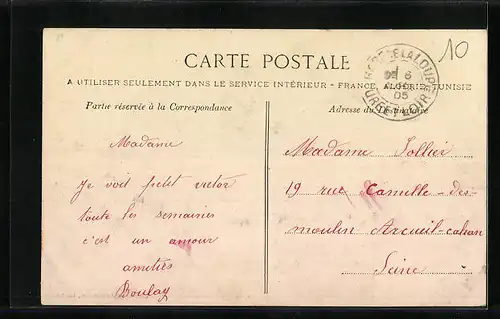 10
CARTE POSTALE
A UTILISER SEULEMENT DANS LE SERVICE INTÉRIEUR - FRANCE, ALGÉRIE, TUNISIE
Partie réservée à la Correspondance
Adresse du Destinataire
LA LOUPE
6
05
EURE-ET-LOIR
Madame
Je voit petit victor
toute les semaines
c'est un amour
amitiés
Boulay
Madame Sollier
19 rue Camille-des-
moulin Arcueil-cahan
Seine